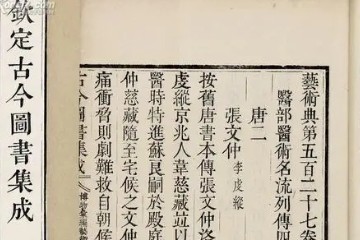 藝術典第五百二十七卷
醫部醫術名流列傳四
唐二
張文仲 李虔縱
按舊唐書本傳張文仲洛
虔縱京兆人韋慈藏
醫時特進蘇良嗣於殿庭
仲慈藏隨至宅候之文仲
痛衝脅則劇難救自朝候
古今圖書集成 博物彙編藝術
欽定古今圖書集成